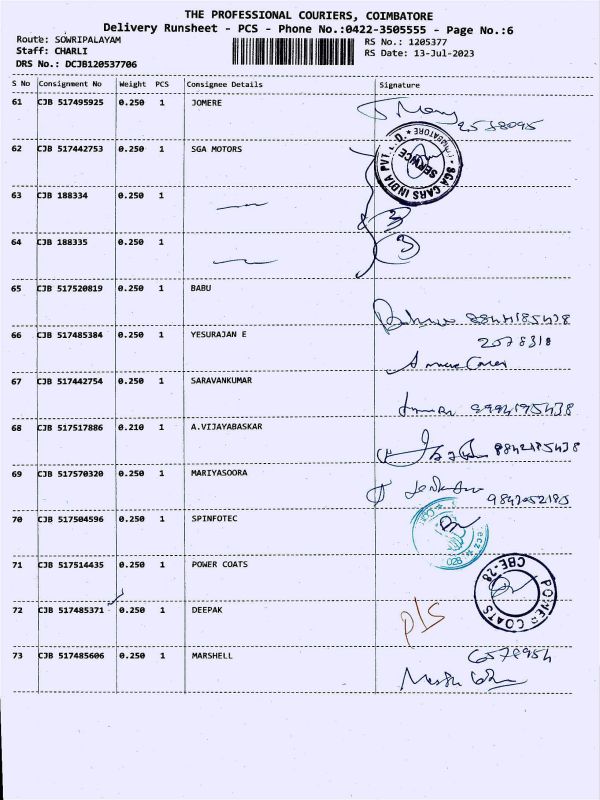 THE PROFESSIONAL COURIERS, COIMBATORE
Delivery Runsheet - PCS - Phone No.:0422-3505555 - Page No.:6
Route: SOWRIPALAYAM
Staff: CHARLI
DRS No.: DCJB120537706
RS No.: 1205377
RS Date: 13-Jul-2023
S No Consignment No Weight PCS Consignee Details Signature
61 CJB 517495925 0.250 1 JOMERE
62 CJB 517442753 0.250 1 SGA MOTORS
SGA CARS INDIA PVT. LTD. * COIMBATORE *
SERVICE
63 CJB 188334 0.250 1
64 CJB 188335 0.250 1
65 CJB 517520819 0.250 1 BABU
66 CJB 517485384 0.250 1 YESURAJAN E
67 CJB 517442754 0.250 1 SARAVANKUMAR
68 CJB 517517886 0.210 1 A.VIJAYABASKAR
69 CJB 517570320 0.250 1 MARIYASOORA
70 CJB 517504596 0.250 1 SPINFOTEC
71 CJB 517514435 0.250 1 POWER COATS
POWER COATS
CBE-28
72 CJB 517485371 0.250 1 DEEPAK
73 CJB 517485606 0.250 1 MARSHELL